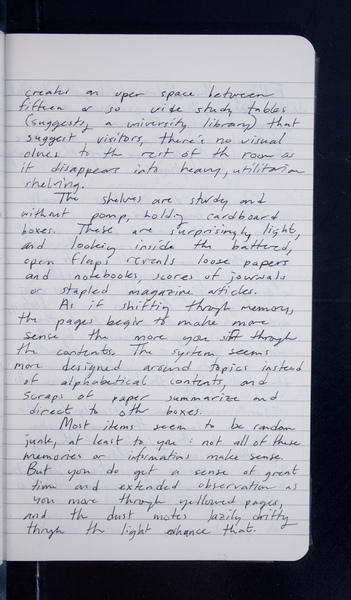 creates an open space between
fifteen or so wide study tables
(suggesting a university library) that
suggest visitors, there's no visual
clues to the rest of th room as
it disappears into heavy, utilitarian
shelving.
The shelves are sturdy and
without pomp, holding cardboard
boxes. These are surprisingly light,
and looking inside the battered,
open flaps reveals loose papers
and notebooks, scores of journals
or stapled magazine articles.
As if shifting through memory,
the pages begin to make more
sense the more you sift through
the contents. The system seems
more designed around topics instead
of alphabetical contents, and
scraps of paper summarize and
direct to other boxes.
Most items seem to be random
junk, at least to you: not all of these
memories or information make sense.
But you do get a sense of great
time and extended observation as
you move through yellowed pages,
and th dust motes lazily drifting
through th light enhance that.